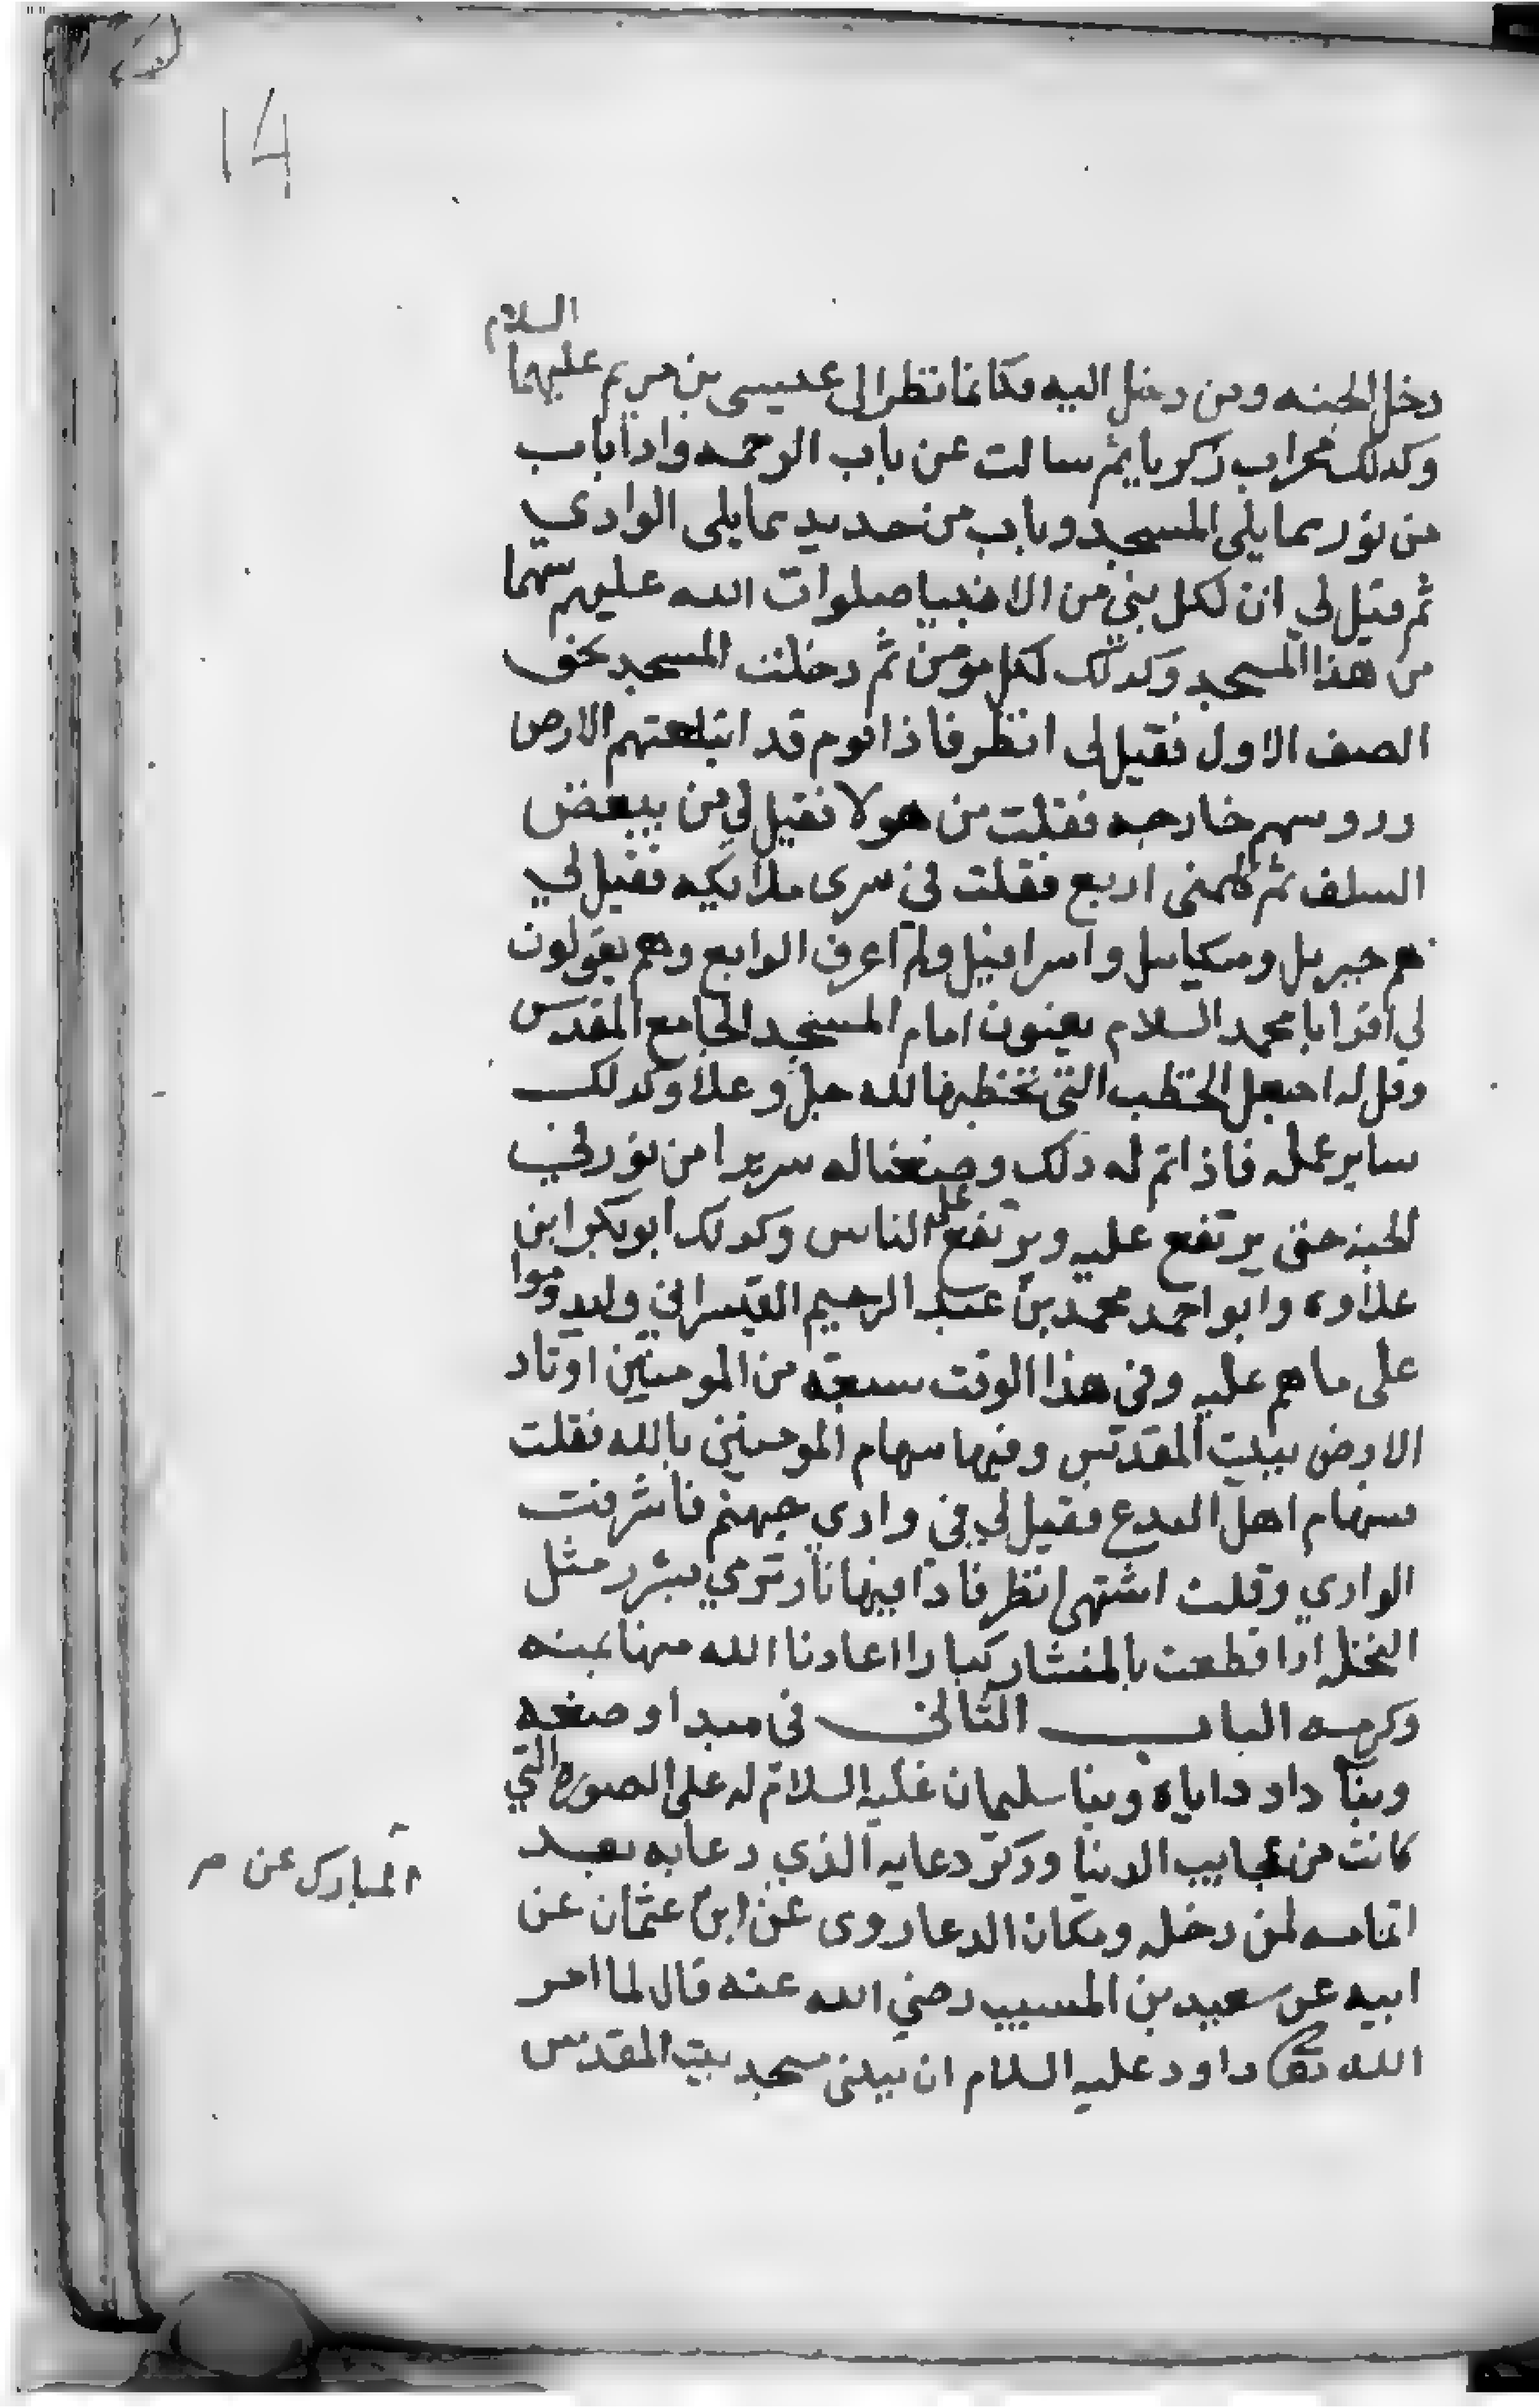 14
السلام
دخل الجنه ومن دخل اليه فكانما نظر الى عيسى بن مريم عليهما
وكدلك محراب زكريا ثم سالت عن باب الرحمه واذا باب
من نور مما يلي المسجد وباب من حديد مما يلي الوادي
ثم قيل لي ان لكل نبي من الانبيا صلوات الله عليهم سهما
من هذا المسجد وكدلك لكل مومن ثم دخلت المسجد نحو
الصف الاول فقيل لي انظر فاذا قوم قد ابتلعتهم الارض
وروسهم خارجه فقلت من هولا فقيل لي من يبغض
السلف ثم كلمنى اربع فقلت لمن ترى ملايكه فقيل لي
نعم جبريل وميكاييل واسرافيل ولم اعرف الرابع وهم يقولون
لي اقرا ابا محمد السلام يعنون امام المسجد الجامع المقدس
وقل له اجعل الخطب التى تخطبها لله جل وعلا وكدلك
ساير عمله فاذا تم له دلك وضعنا له سريرا من نور في
الجنه حتى يرتفع عليه ويرتفع على الناس وكدلك ابو بكر ابن
علاوه وابو احمد محمد بن عبد الرحيم القيسراني وليدوموا
على ما هم عليه وفى هذا الوقت سبعه من المومنين اوتاد
الارض ببيت المقدس وفيها سهام المومنين بالله فقلت
فسهام اهل البدع فقيل لي في وادي جهنم فاشرفت
الوادي وقلت اشتهى انظر فاذا فيها نار ترمي بشرر مثل
النخل اذا قطعت بالمنشار كبارا اعاذنا الله منها بمنه
وكرمه الباب الثاني في مبدا وضعه
وبنآ داود اياه وبنا سليمان عليه السلام له على الصوره التي
كانت من عجايب الدنيا وذكر دعايه الذي دعا به بعد
اتمامه لمن دخله ومكان الدعا روى عن ابن عثمان عن
المبارك عن
ابيه عن سعيد بن المسيب رضي الله عنه قال لما امر
الله تعالى داود عليه السلام ان يبنى مسجد بيت المقدس